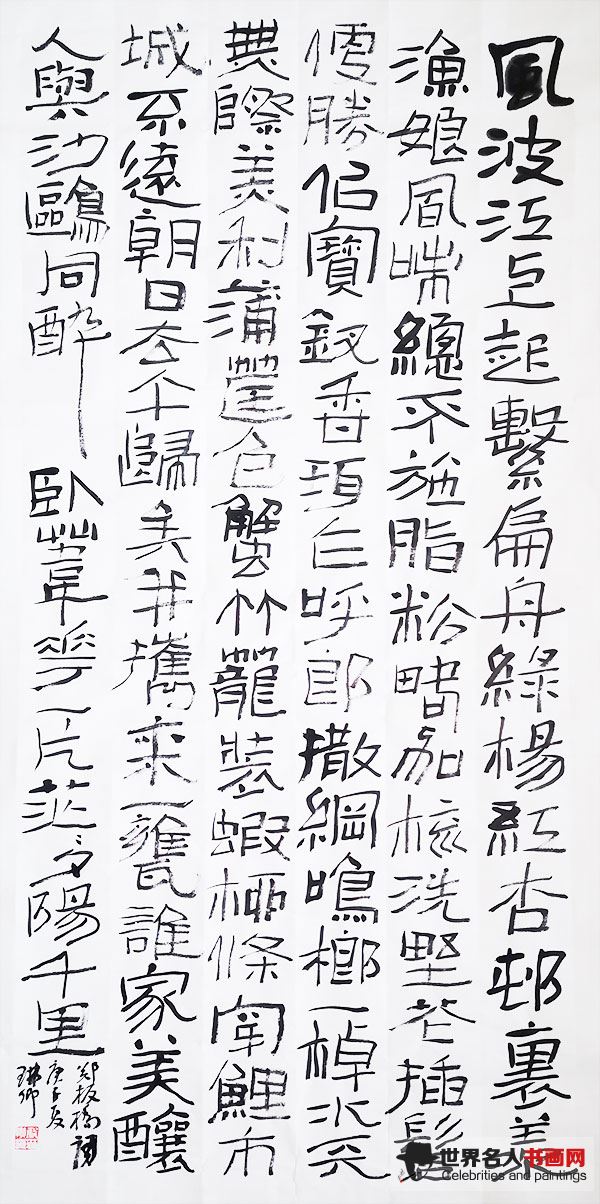 風波江上起繫扁舟綠楊紅杏邨裏羡
漁娘風味總不施脂粉略加梳洗野花插髻
便勝佀寶釵香珥乍呼郎撒綱鳴榔一棹水天
無際美利蒲筐包蟹竹籠裝蝦柳條穿鯉市
城不遠朝日去午歸矣并攜來一甕誰家美釀
人與沙鷗同醉 卧葦花一片茫夕陽千里
鄭板橋詞
庚子夏
世界名人书画网
Celebrities and paintings